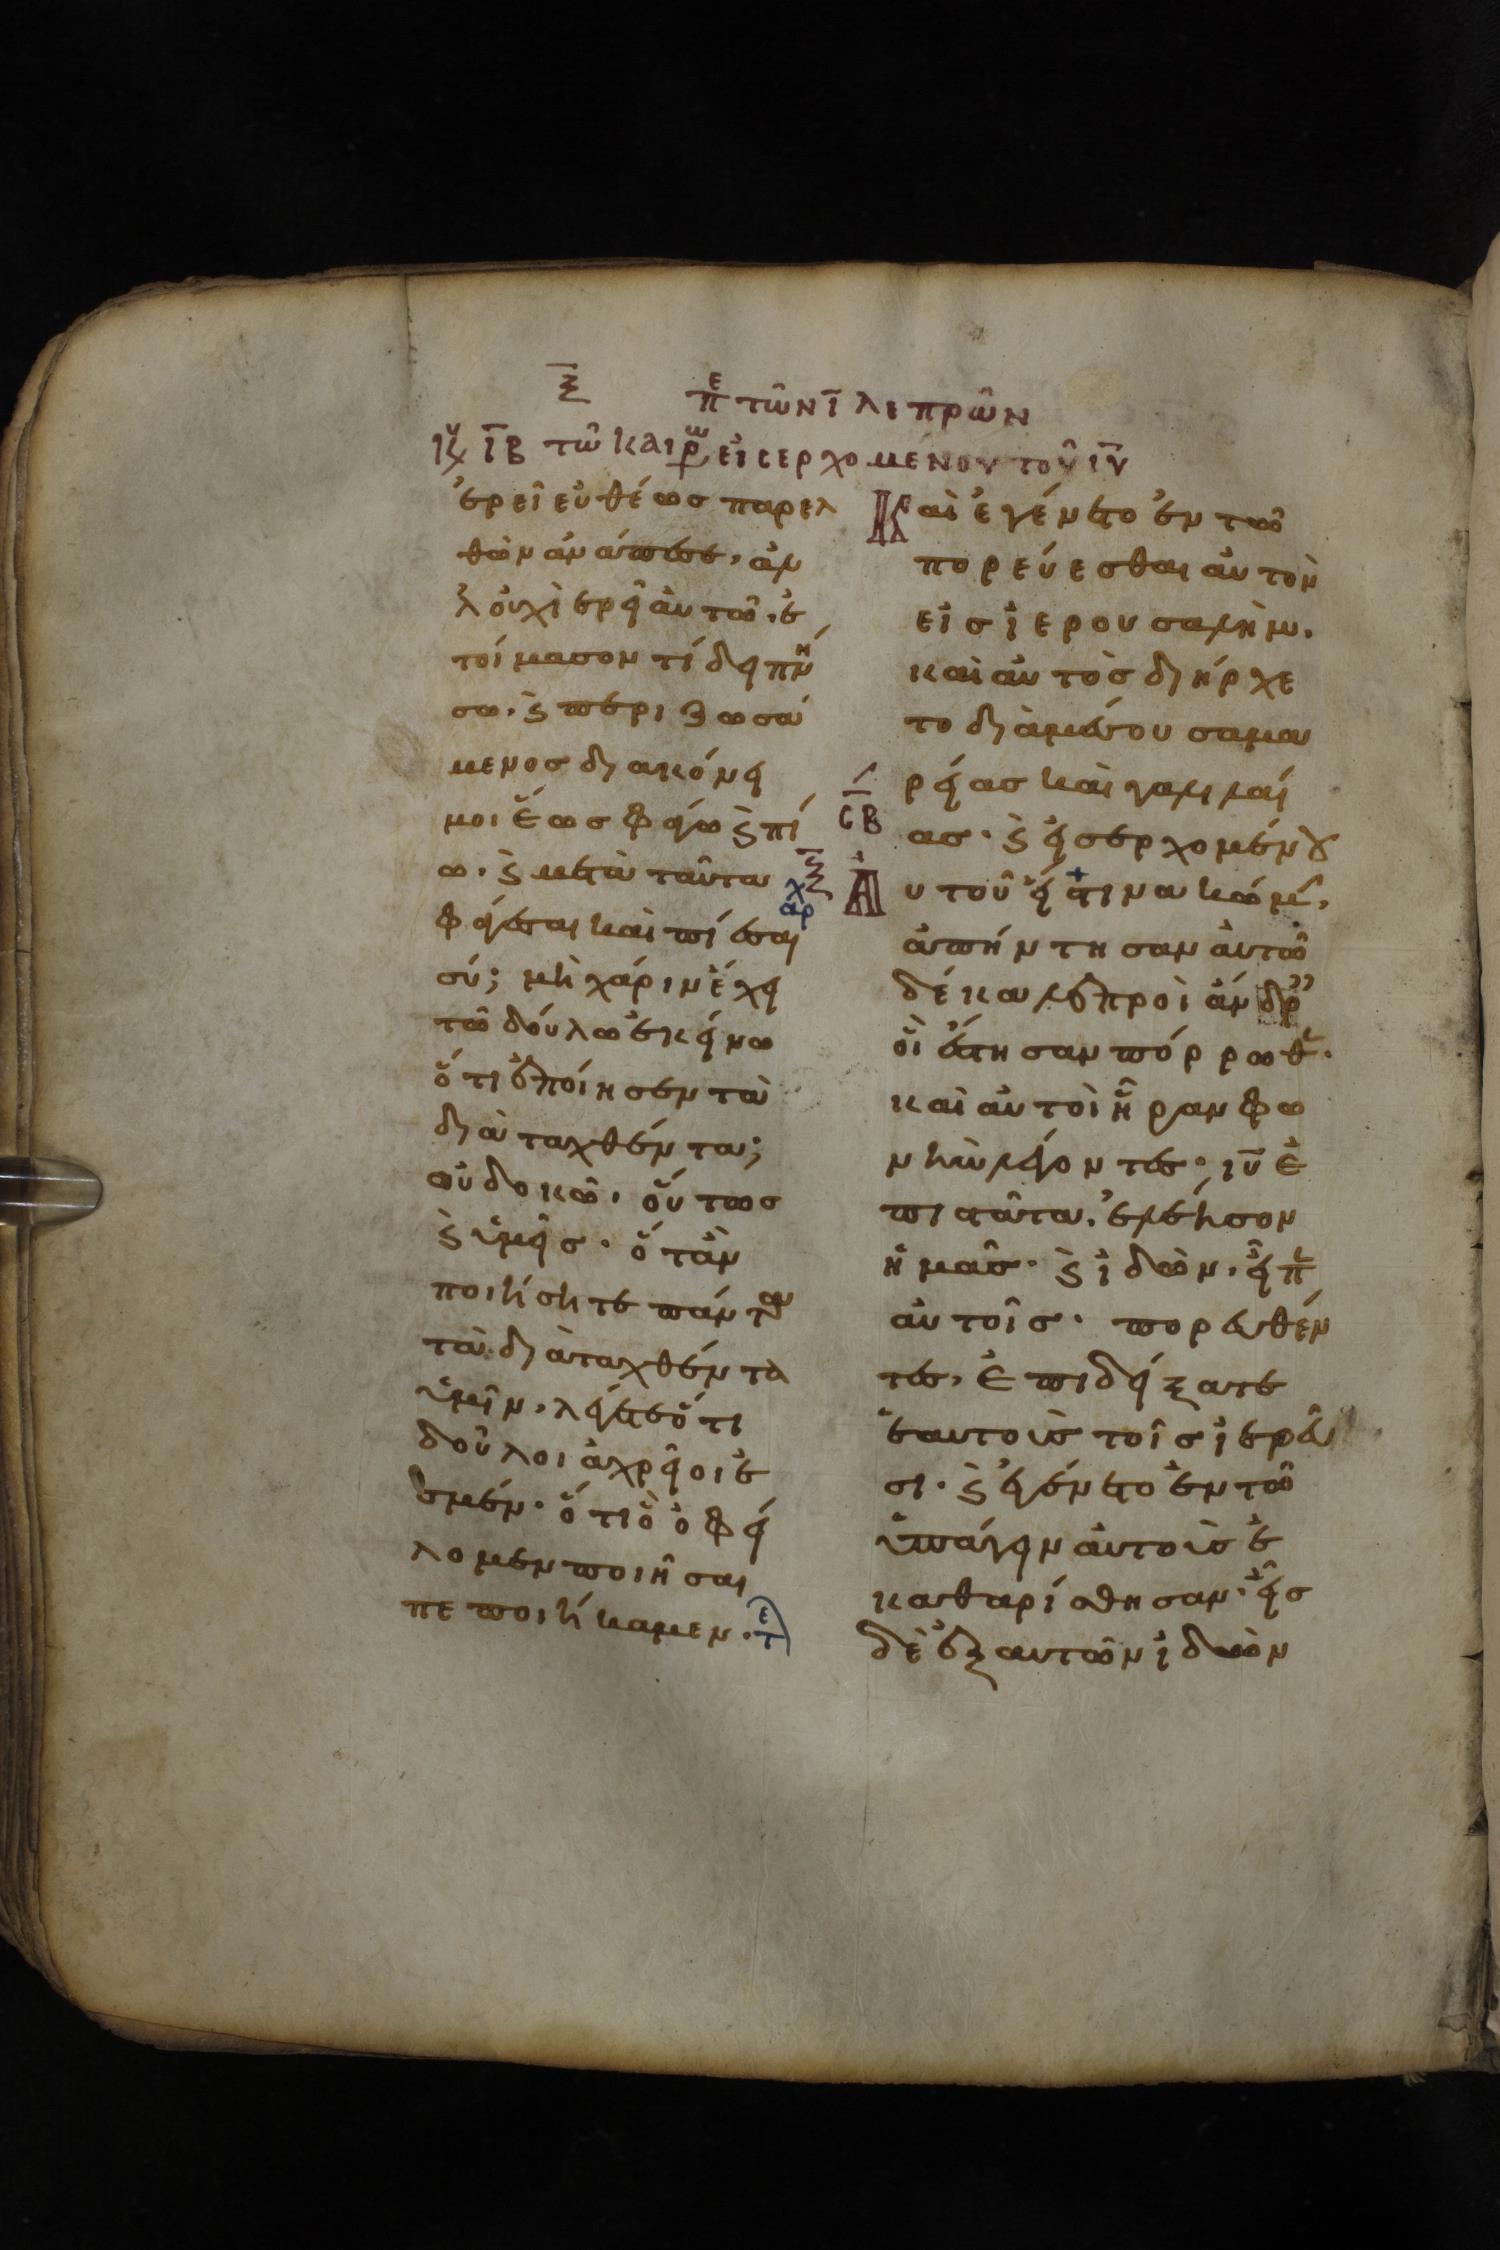 ξ̅ πε τῶν ι̅ λεπρῶν
Κυ ι̅β τῶ καιρω εἰσερχομένου τοῦ ι̅υ̅
ἐρεῖ εὐθέωσ παρελ
θὼν ἀνάπεσε, ἀλ
λ οὐχὶ ἐρεῖ αὐτῶ, ἑ
τοίμασον τί δειπνή
σω, ϗ περιζωσά
μενοσ διακόνει
μοι ἕωσ φάγω ϗ πί
ω. ϗ μετὰ ταῦτα
φάγεσαι καὶ πίεσαι
σύ; μὴ χάριν ἔχει
τῶ δούλω ἐκείνω
ὅτι ἐποίησεν τὰ
διαταχθέντα;
οὐ δοκῶ. οὕτωσ
ϗ ὑμεῖσ. ὅτὰν
ποιήσητε πάντα
τὰ διαταχθέντα
ὑμῖν, λέγετε ὅτι
δοῦλοι ἀχρεῖοι ἐ
σμέν. ὅτι ὃ ὀφεί
λομεν ποιῆσαι
πεποιήκαμεν. τε
Καὶ ἐγένετο ἐν τῶ
πορεύεσθαι αὐτὸν
εἰσ ἱερουσαλὴμ.
καὶ αὐτὸσ διήρχε
το διὰ μέσου σαμα
ρείασ καὶ γαλιλαί
σβ
ασ. ϗ εἰσερχομένου
ξ̅
χ
αρ
Α
υτοῦ εἴστινα κώμη,
ἀπήντησαν αὐτῶ
δέκα λεπροὶ ἄνδρ
οἳ ἔστησαν πόρρωθ.
καὶ αὐτοὶ ἦραν φω
νὴν λέγοντεσ, ι̅υ̅ ἐ
πιστάτα, ἐλέησον
ἡμᾶσ. ϗ ἰδὼν, εἶπ
αὐτοῖσ. πορευθέν
τεσ, ἐπιδείξατε
ἑαυτοὺσ τοῖσ ἱερεῦ
σι. ϗ ἐγένετο ἐν τῶ
ὑπάγειν αὐτοὺσ ἐ
καθαρίσθησαν. εἷσ
δὲ ἐξ αυτῶν ἰδὼν